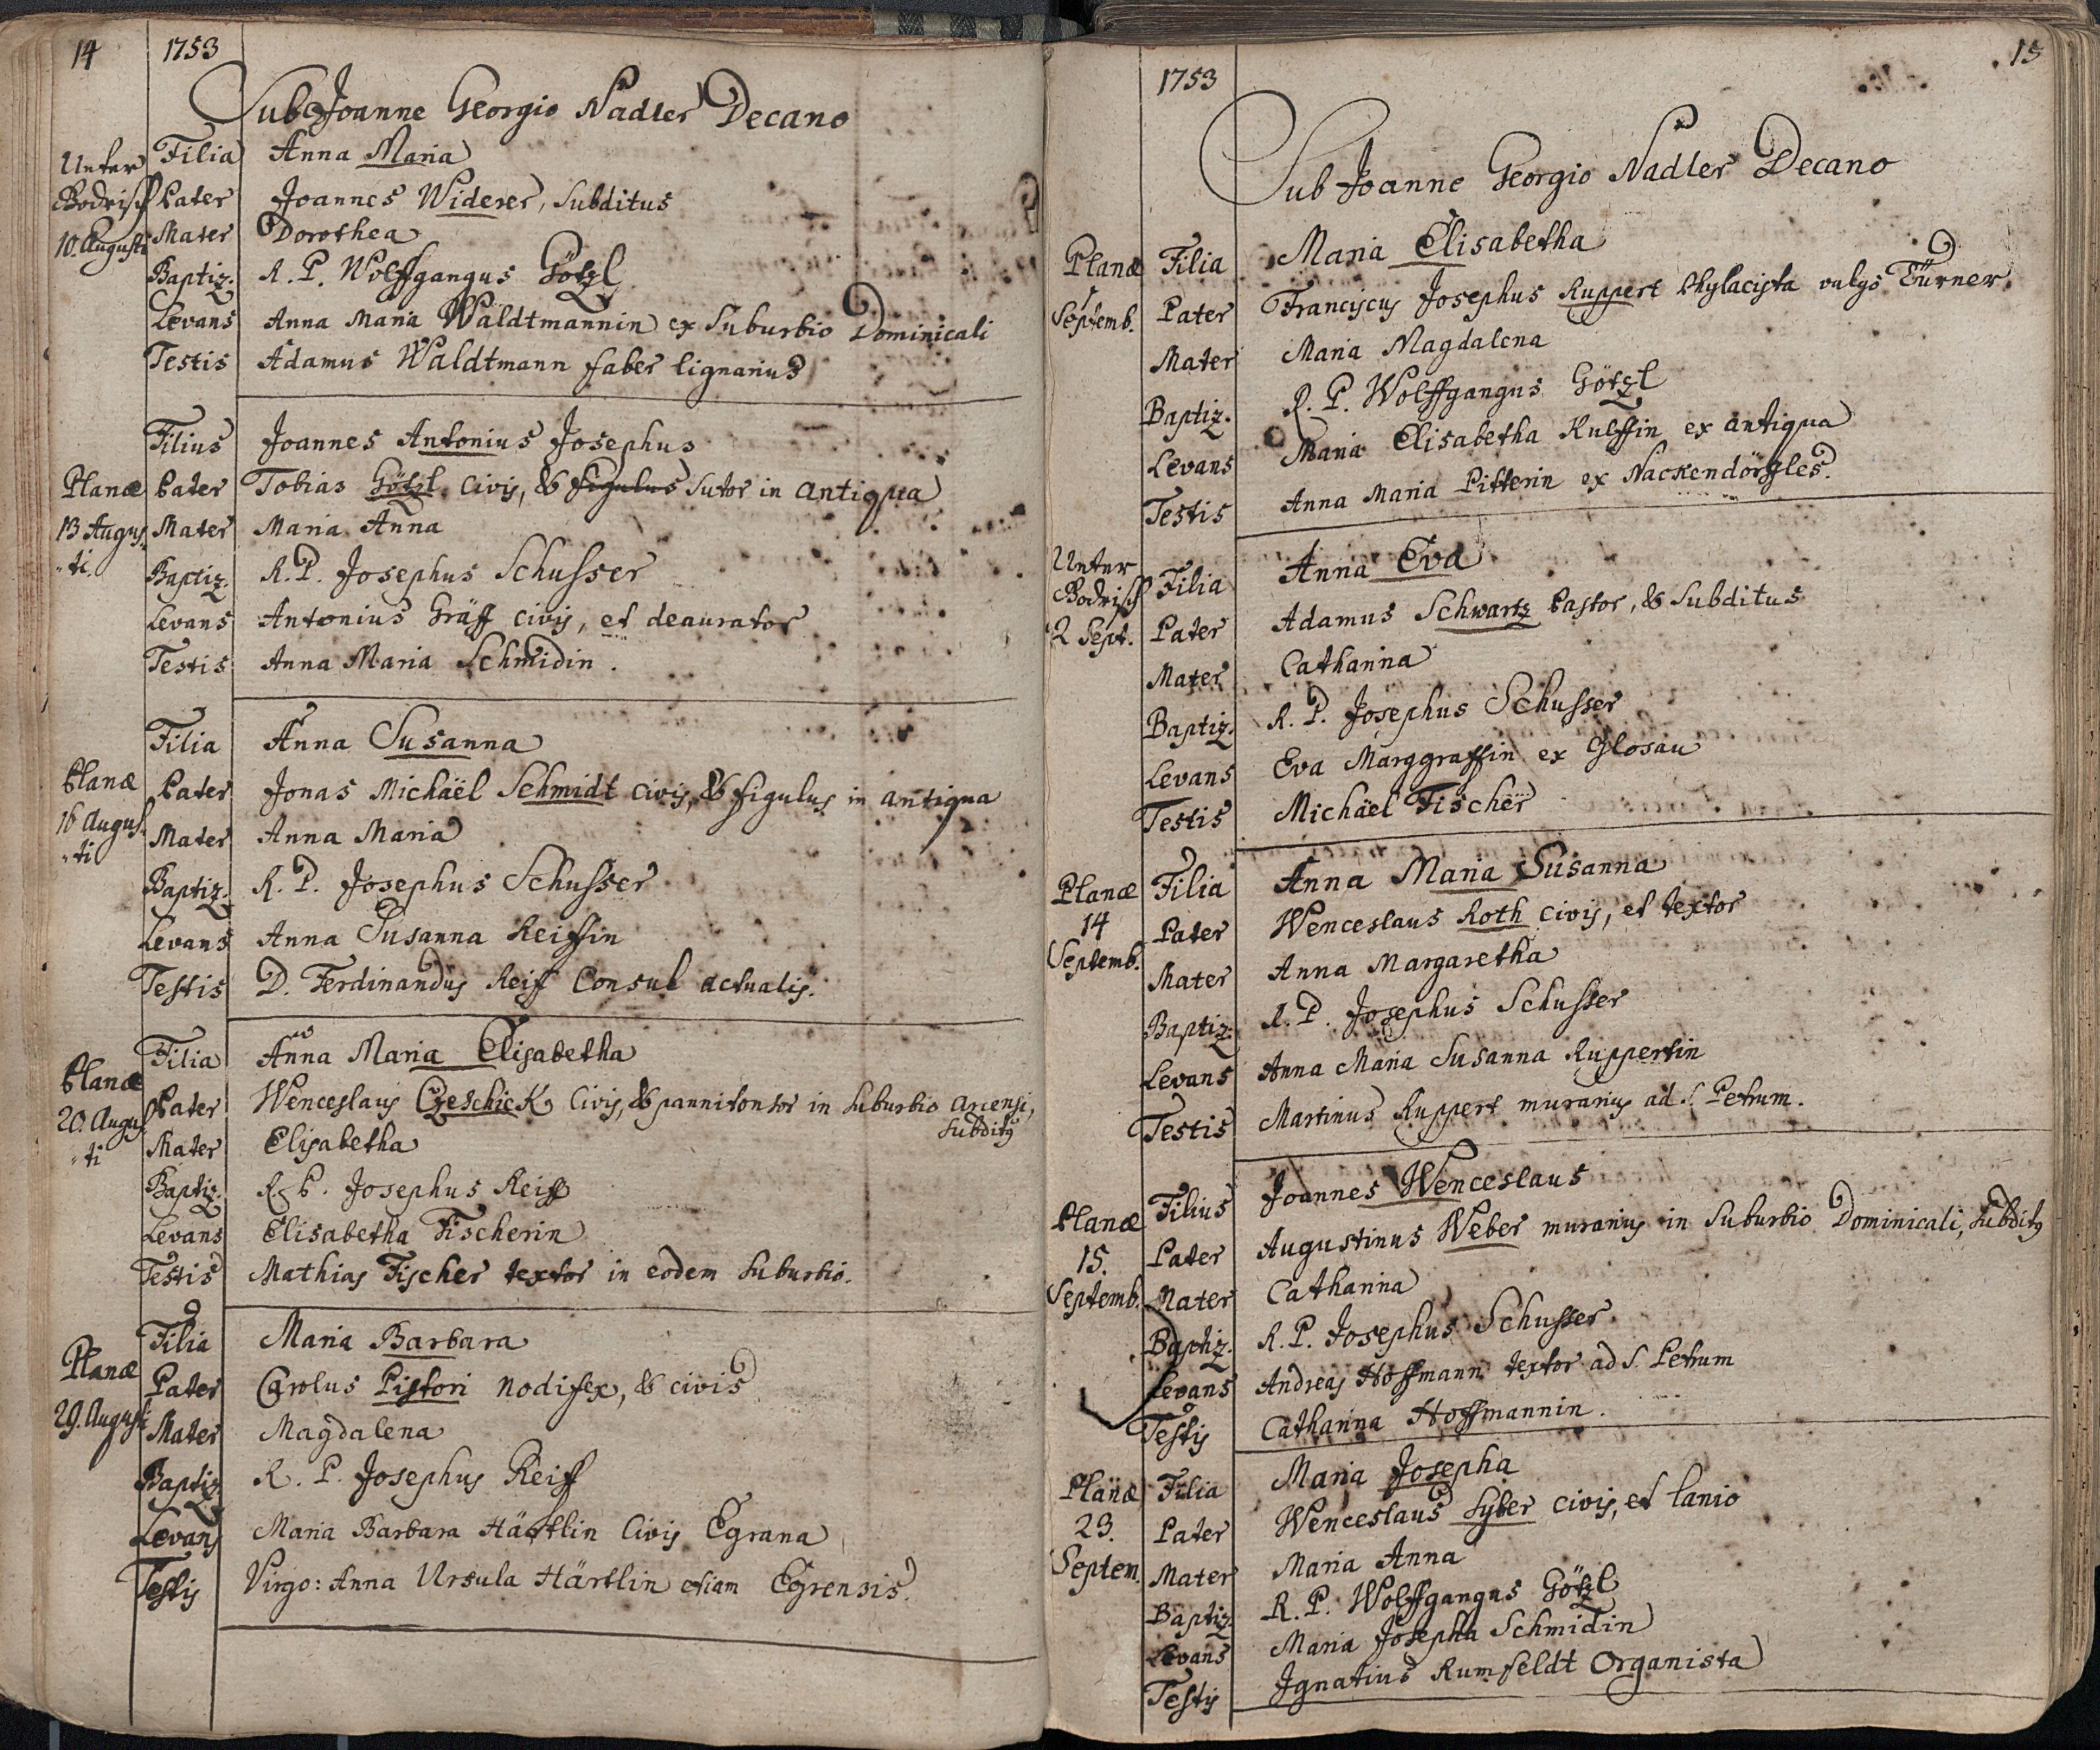 14 1753
Sub Joanne Georgio Nadler Decano
Unter Filia Anna Maria
Bodrisch Pater Joannes Widerer, Subditus
10. Augusti Mater Dorothea
Baptiz. R. P. Wolffgangus Götzl
Levans Anna Maria Waldtmannin ex Suburbio Dominicali
Testis Adamus Waldtmann faber lignarius
Filius Joannes Antonius Josephus
Planæ Pater Tobias Götzl civis, & figulus Sutor in antiqua
13 Augus Mater Maria Anna
ti. Baptiz. R. P. Josephus Schusser
Levans Antonius Gräff civis, et deaurator
Testis Anna Maria Schmidin.
Filia Anna Susanna
Planæ Pater Jonas Michaël Schmidt civis, & figulus in antiqua
16 Augus Mater Anna Maria
ti Baptiz. R. P. Josephus Schusser
Levans Anna Susanna Reiffin
Testis D. Ferdinandus Reiff Consul actualis.
Filia Anna Maria Elisabetha
Planæ Pater Wenceslaus Czeschick Civis, & pannitonsor in Suburbio arcensi,
Subditus
20. Augus Mater Elisabetha
ti Baptiz. R. P. Josephus Reiff
Levans Elisabetha Fischerin
Testis Mathias Fischer textor in eodem Suburbio.
Filia Maria Barbara
Planæ Pater Carolus Pistori nodifex, & civis
29. Augusti Mater Magdalena
Baptiz R. P. Josephus Reiff
Levans Maria Barbara Härtlin Civis Egrana
Testis Virgo: Anna Ursula Härtlin etiam Egrensis.
1753 15
Sub Joanne Georgio Nadler Decano
Planæ Filia Maria Elisabetha
1 Septemb. Pater Franciscus Josephus Ruppert Phylacista vulgo Türner.
Mater Maria Magdalena
Baptiz. R. P. Wolffgangus Götzl
Levans Maria Elisabetha Rulffin ex antiqua
Testis Anna Maria Pitterin ex Nackendörfles.
Unter
Bodrisch Filia Anna Eva
2 Sept. Pater Adamus Schwartz Pastor, & Subditus
Mater Catharina
Baptiz. R. P. Josephus Schusser
Levans Eva Marggraffin ex Glosau
Testis Michäel Fischer
Planæ Filia Anna Maria Susanna
14 Pater Wenceslaus Roth civis, et textor
Septemb. Mater Anna Margaretha
Baptiz. R. P. Josephus Schusser
Levans Anna Maria Susanna Ruppertin
Testis Martinus Ruppert murarius ad S. Petrum.
Planæ Filius Joannes Wenceslaus
15. Pater Augustinus Weber murarius in Suburbio Dominicali, Subditus
Septemb. Mater Catharina
Baptiz. R. P. Josephus Schusser
Levans Andreas Hoffmann textor ad S. Petrum
Testis Catharina Hoffmannin.
Planæ Filia Maria Josepha
23. Pater Wenceslaus Syber civis, et lanio
Septem. Mater Maria Anna
Baptiz R. P. Wolffgangus Götzl
Levans Maria Josepha Schmidin
Testis Ignatius Rumfeldt Organista